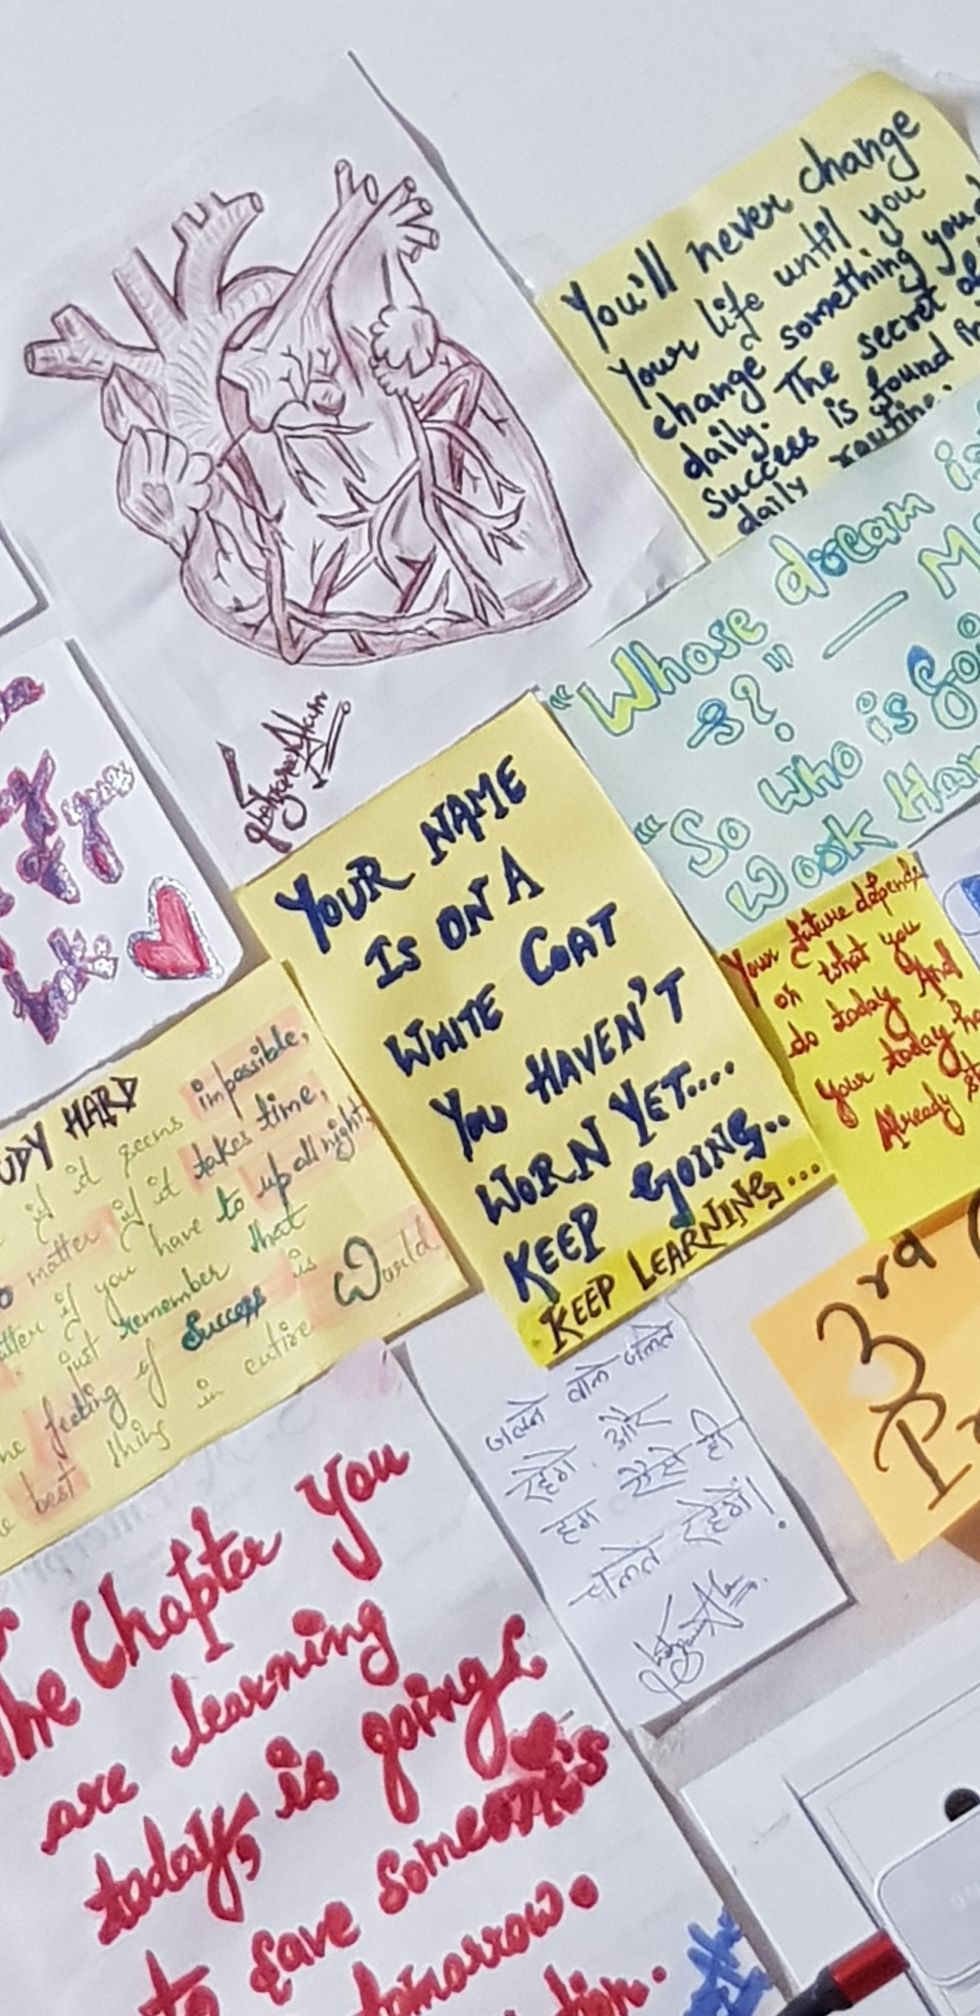 You'll never change
Your life until you
change something you
daily. The secret of
success is found
daily routine.
"Whose dream is
3?" — M
"So who is Goi
Work Har
YOUR NAME
IS ON A
WHITE COAT
YOU HAVEN'T
WORN YET....
KEEP GOING..
KEEP LEARNING...
Your future depends
on what you
do today. And
Your today ha
Already st
UDY HARD
if it seems impossible,
matter if it takes time,
if you have to up all night,
just remember that
feeling of Success is
best thing in entire World
जलने वाले जलते
रहेंगे. और
हम ऐसे ही
चलते रहेंगे!
3rd
The Chapter You
are learning
today, is going
to save someone's
tomorrow.